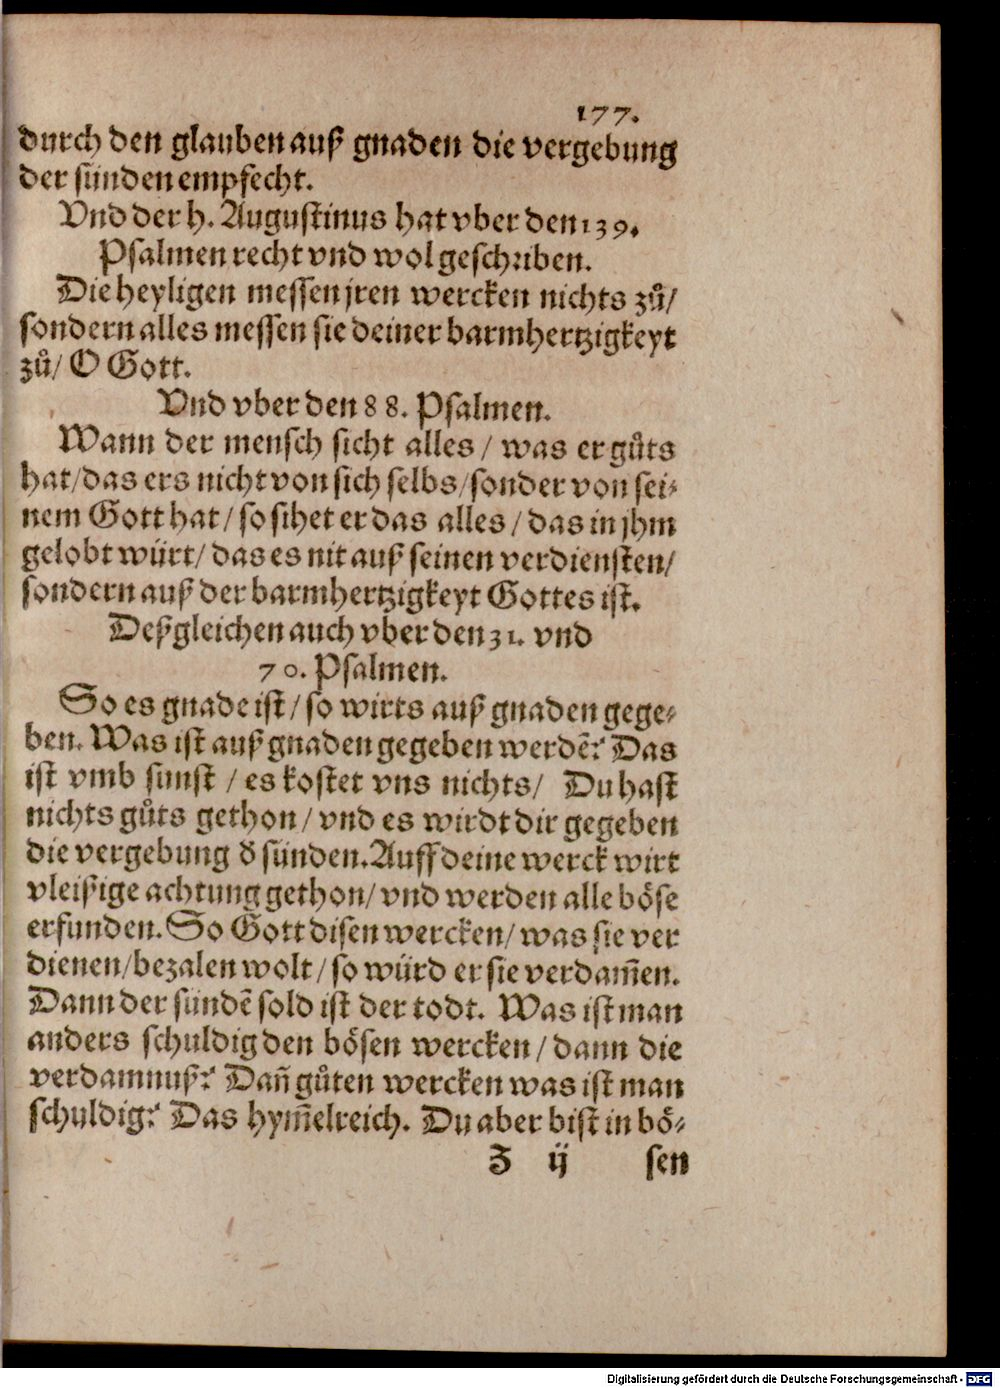 177.
durch den glauben auß gnaden die vergebung
der sünden empfecht.
Vnd der h. Augustinus hat vber den 139.
Psalmen recht vnd wol geschriben.
Die heyligen messen jren wercken nichts zů/
sondern alles messen sie deiner barmhertzigkeyt
zů/ O Gott.
Vnd vber den 88. Psalmen.
Wann der mensch sicht alles / was er gůts
hat/das ers nicht von sich selbs/sonder von sei-
nem Gott hat/ so sihet er das alles / das in jhm
gelobt würt/ das es nit auß seinen verdiensten/
sondern auß der barmhertzigkeyt Gottes ist.
Deßgleichen auch vber den 31. vnd
70. Psalmen.
So es gnade ist/ so wirts auß gnaden gege-
ben. Was ist auß gnaden gegeben werdẽ? Das
ist vmb sunst / es kostet vns nichts/ Du hast
nichts gůts gethon/ vnd es wirdt dir gegeben
die vergebung d sünden. Auff deine werck wirt
vleißige achtung gethon/ vnd werden alle böse
erfunden. So Gott disen wercken/ was sie ver
dienen/bezalen wolt/ so würd er sie verdam̃en.
Dann der sündẽ sold ist der todt. Was ist man
anders schuldig den bösen wercken/ dann die
verdamnuß? Dañ gůten wercken was ist man
schuldig? Das hym̃elreich. Du aber bist in bö-
Z ij sen
Digitalisierung gefördert durch die Deutsche Forschungsgemeinschaft - DFG